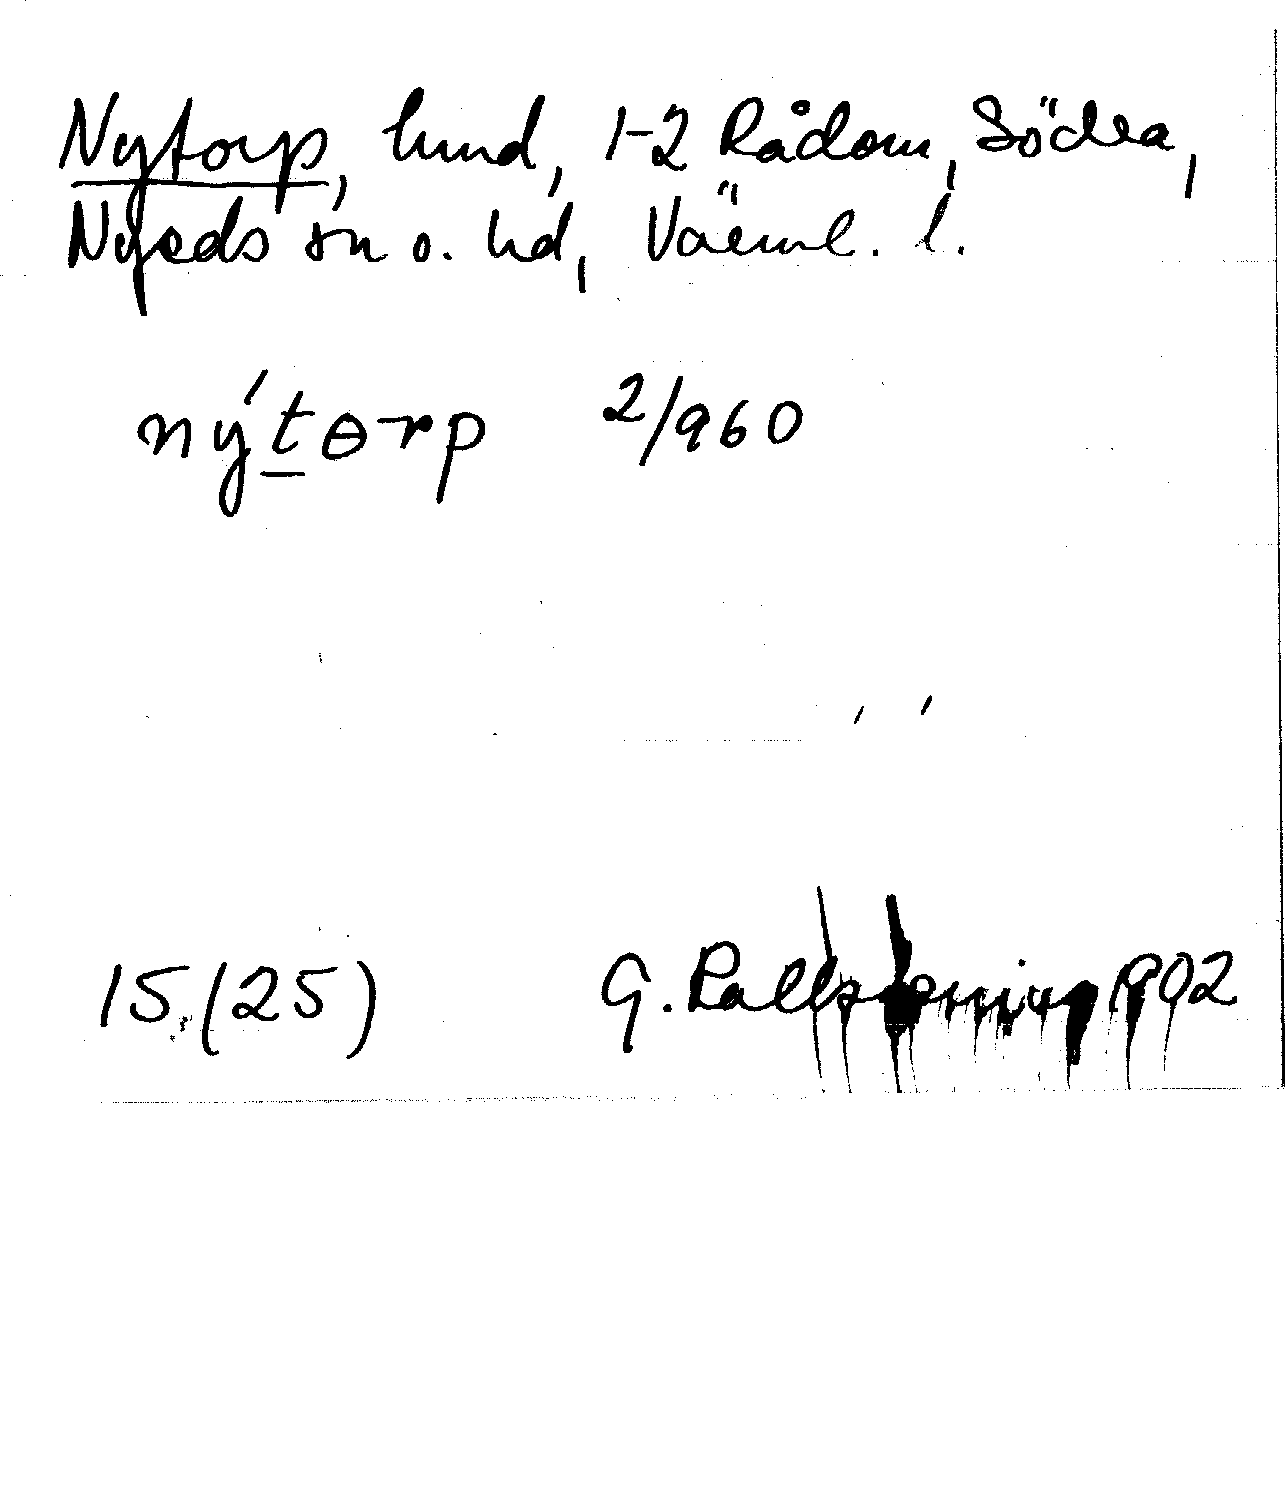 Nytorp, hmd, 1-2 Rådom, Södra,
Nyeds sn o. hd, Värml. l.
nýtɵrp 2/960
15.(25) G. Rallstening 1902